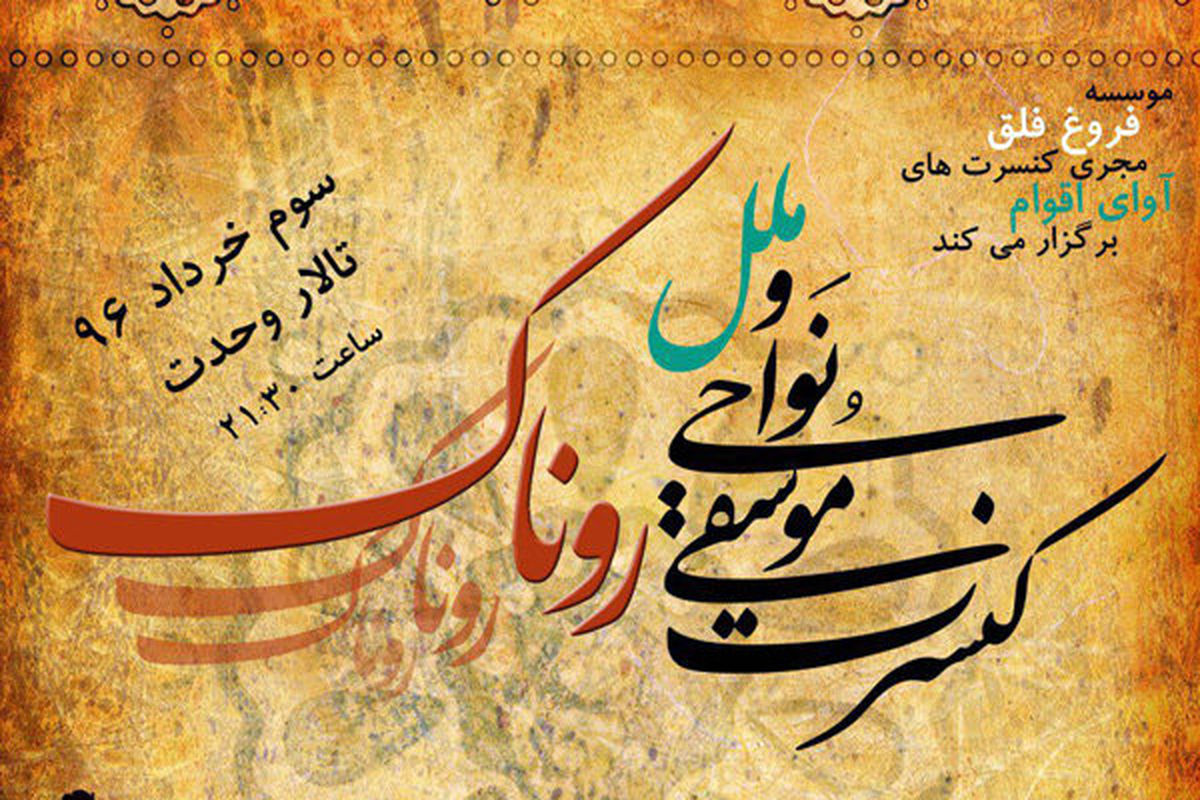 موسسه
فروغ فلق
مجری کنسرت های
آوای اقوام
برگزار می کند
کنسرت
موسیقی
نواحی
و
ملل
روناک
روناک
روناک
سوم خرداد ۹۶
تالار وحدت
ساعت ۲۱:۳۰